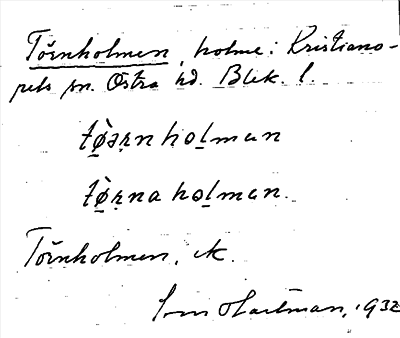 Törnholmen, holme i Kristiano-
pels sn. Östra hd. Blek. l.
tø̀ərṇ holman
tø̀rṇa holman.
Törnholmen, ek.
Hartman, 1932